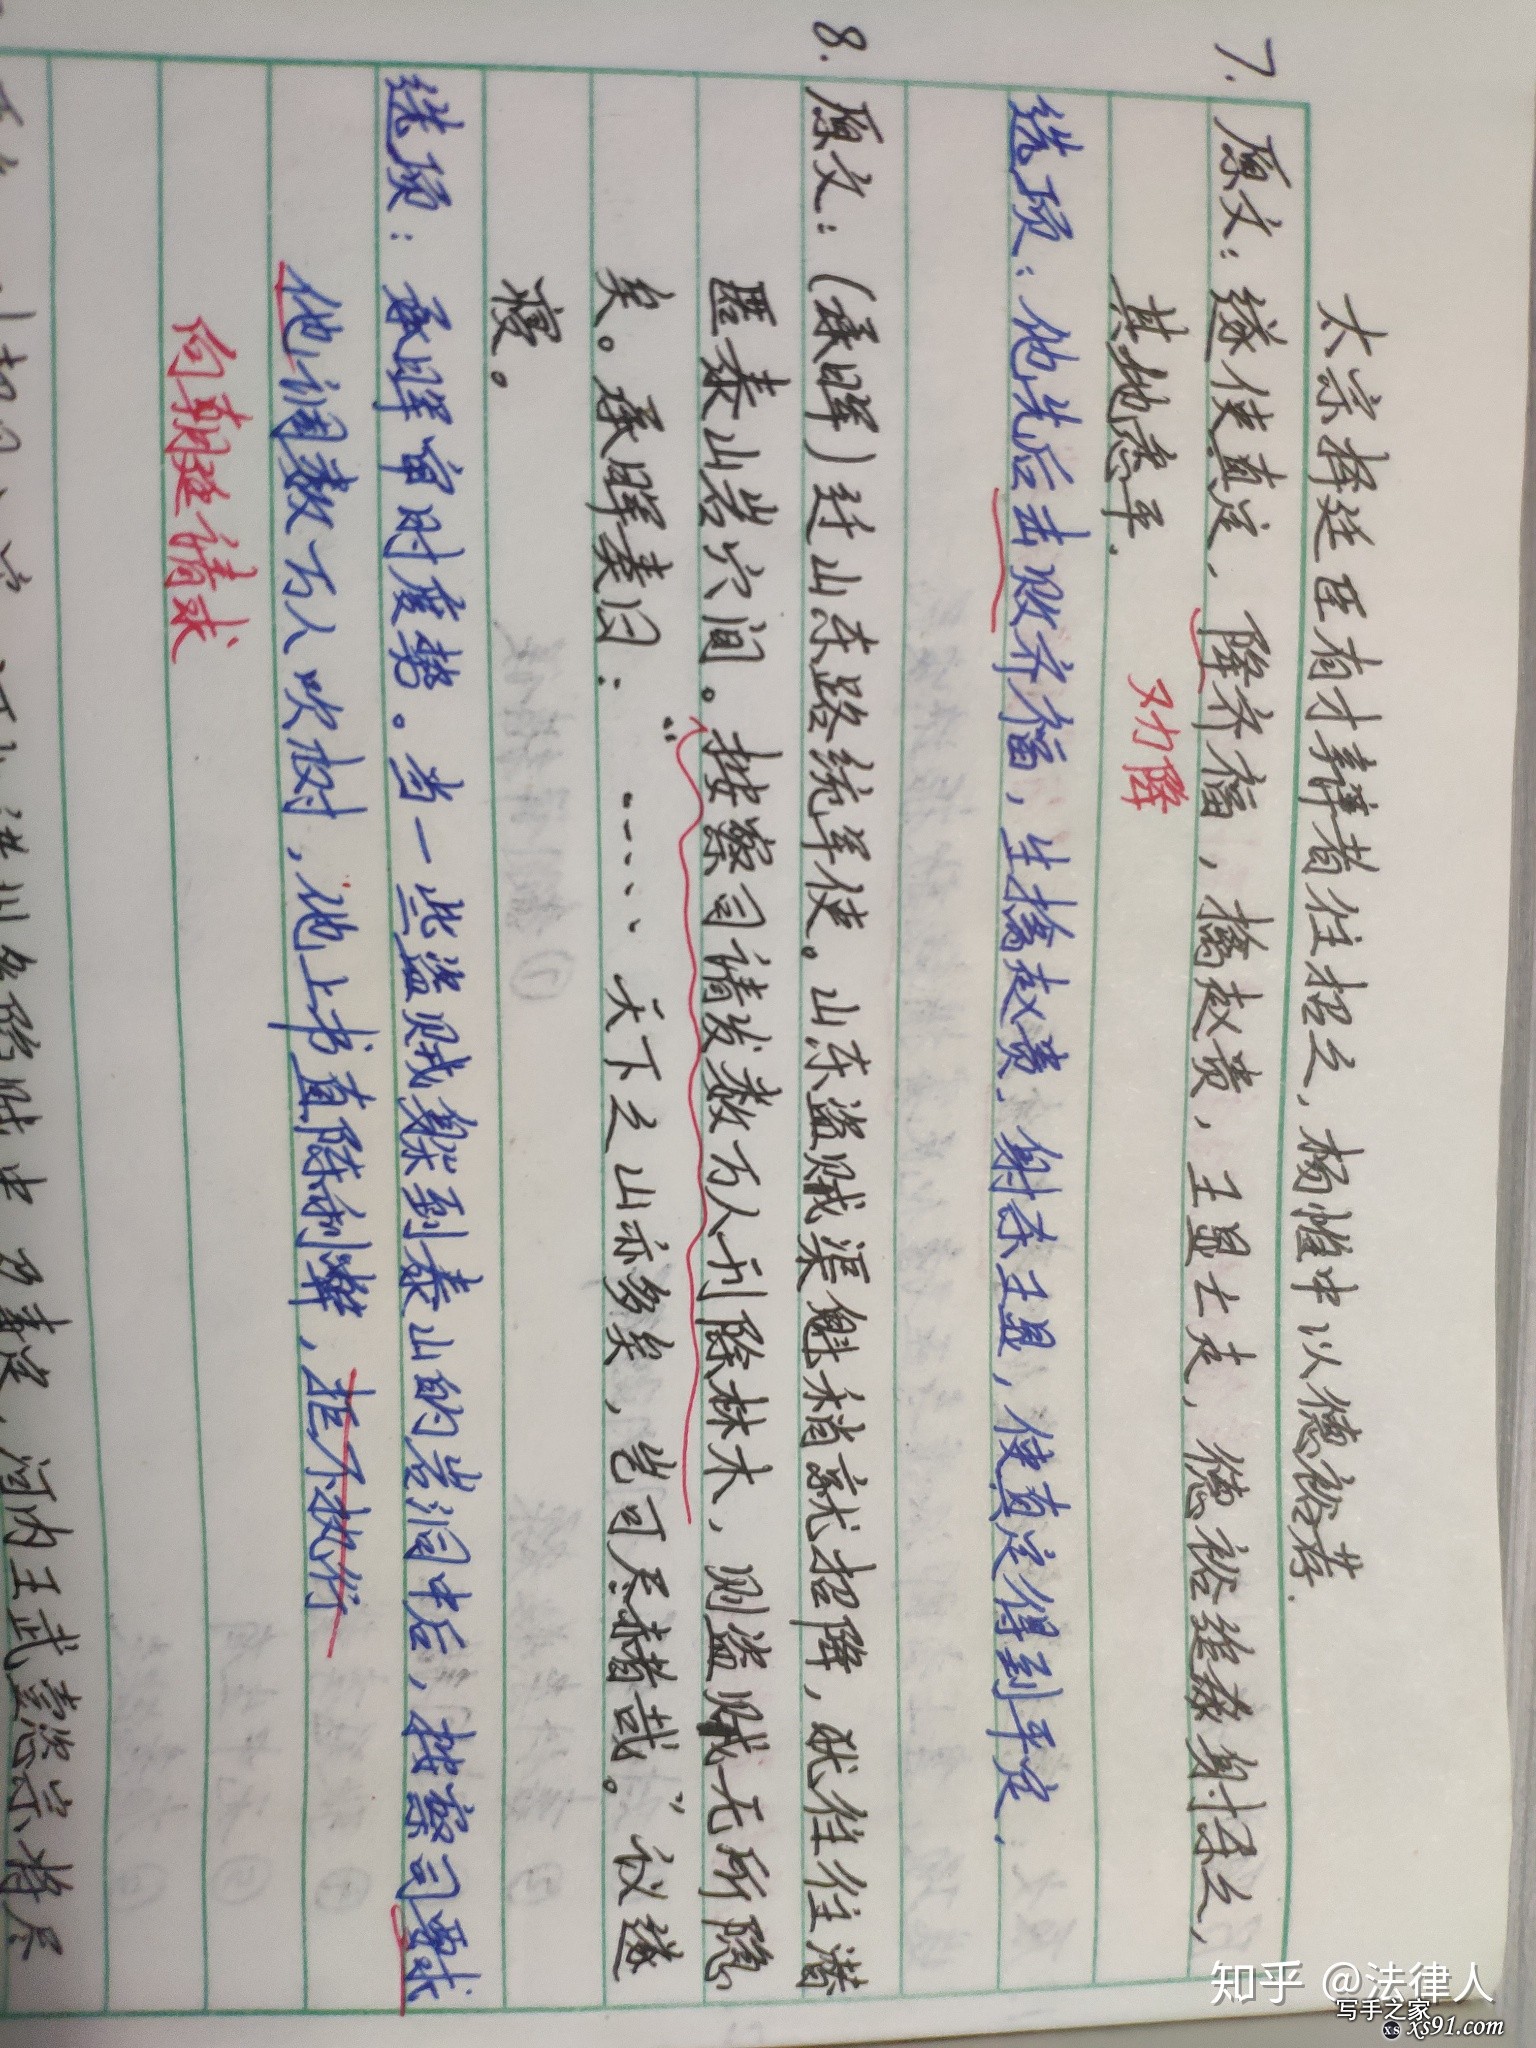 太宗择廷臣有才辩者往招之,杨惟中以德裕荐.
7. 原文:遂使真定,降齐福,擒赵贵,王显亡走,德裕追袭射杀之,
其地悉平.
劝降
选项:他先后击败齐福,生擒赵贵,射杀王显,使真定得到平定.
8. 原文:(承晖)迁山东路统军使。山东盗贼渠魁稍就招降,犹往往潜
匿泰山岩穴间。按察司请发数万人刊除林木,则盗贼无所隐
矣。承晖奏曰:“……天下之山亦多矣,岂可尽赭哉。”议遂
寝。
选项:承晖审时度势。当一些盗贼躲到泰山的岩洞中后,按察司要求
他调数万人砍树,他上书直陈利弊,拒不执行
向朝廷请求
知乎 @法律人
写手之家
xs xs91.com